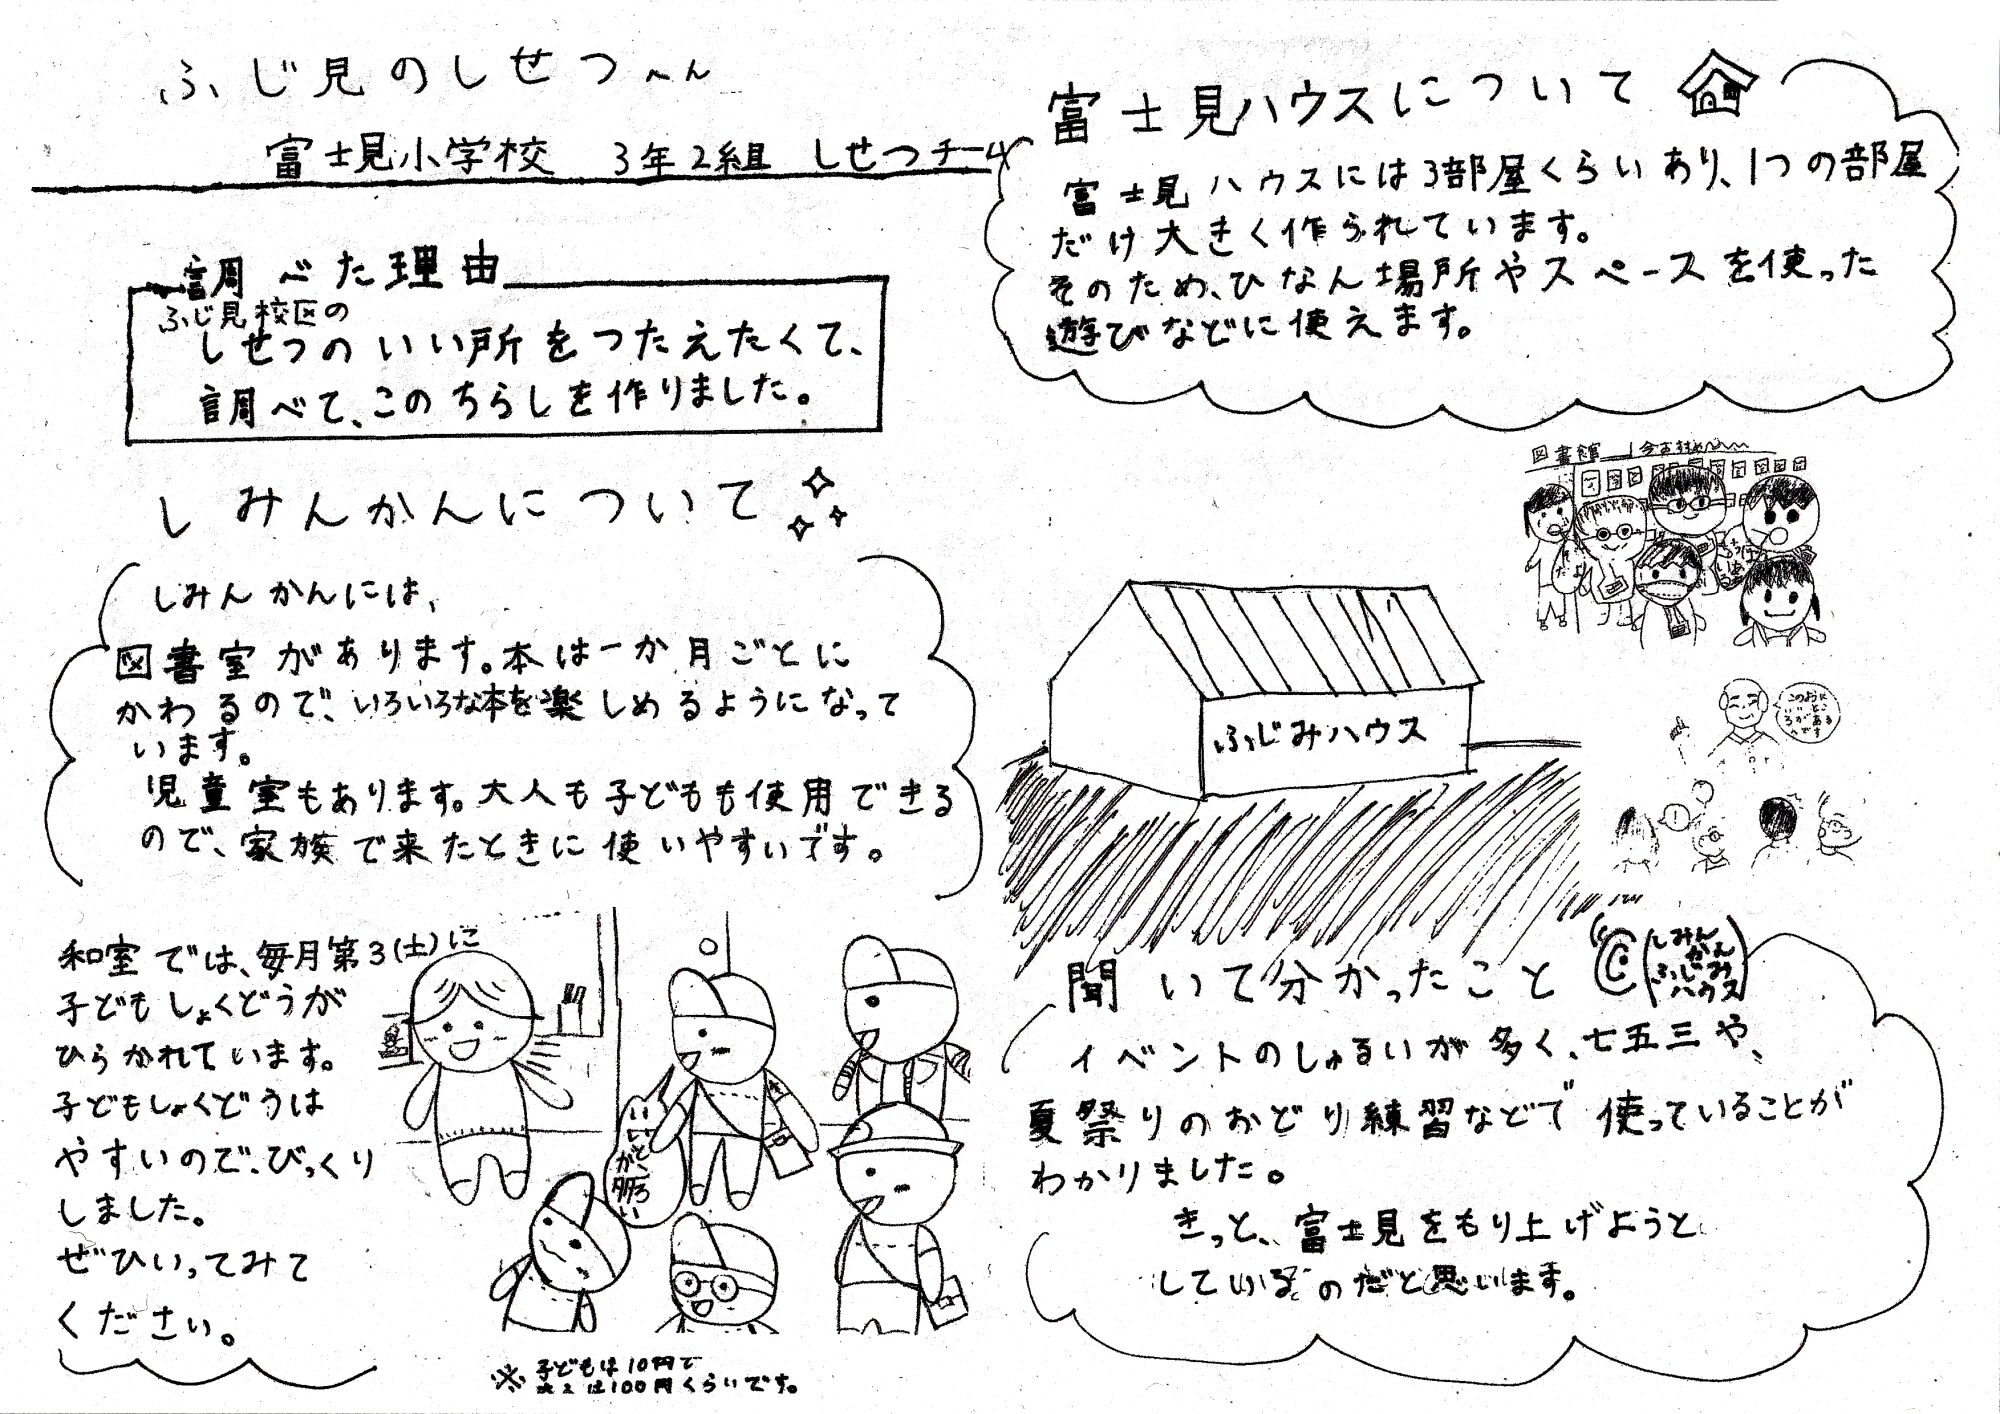 ふじ見のしせつへん
富士見小学校 3年2組 しせつチーム
調べた理由
ふじ見校区の
しせつのいい所をつたえたくて、
調べて、このちらしを作りました。
しみんかんについて
しみんかんには、
図書室があります。本は一か月ごとに
かわるので、いろいろな本を楽しめるようになって
います。
児童室もあります。大人も子どもも使用できる
ので、家族で来たときに使いやすいです。
和室では、毎月第3(土)に
子どもしょくどうが
ひらかれています。
子どもしょくどうは
やすいので、びっくり
しました。
ぜひいってみて
ください。
※子どもは10円で
大人は100円くらいです。
富士見ハウスについて
富士見ハウスには3部屋くらいあり、1つの部屋
だけ大きく作られています。
そのため、ひなん場所やスペースを使った
遊びなどに使えます。
図書館
ふじみハウス
このように
聞いて分かったこと
(しみん
かん
ふじみ
ハウス)
イベントのしゅるいが多く、七五三や、
夏祭りのおどり練習などで使っていることが
わかりました。
きっと、富士見をもり上げようと
しているのだと思います。